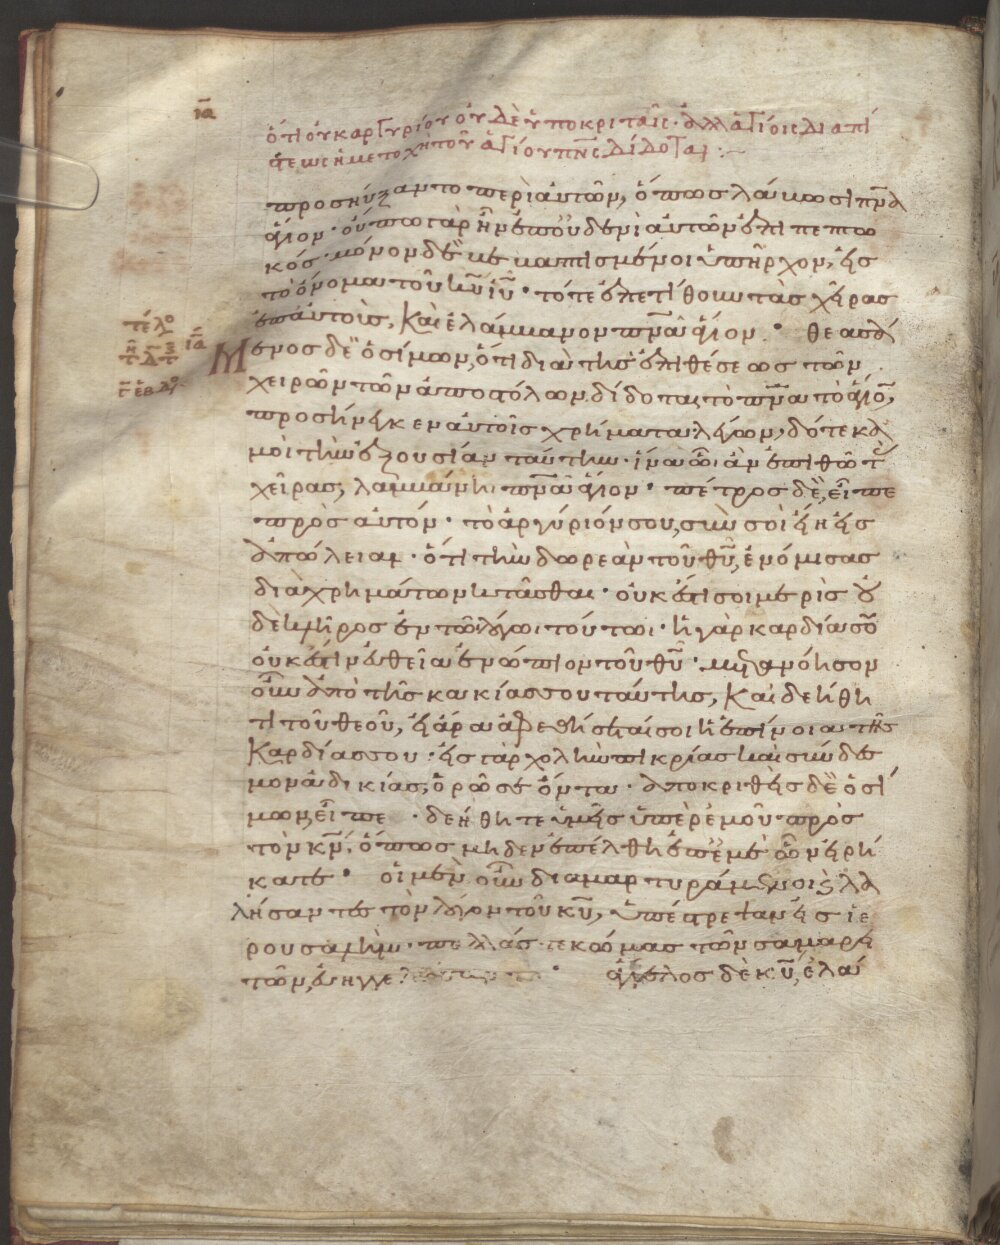 ια
ὅτι οὐκ ἀργυρίου οὐδὲ ὑποκριταῖς· ἀλλ ἁγίοις διὰ πί
στεως ἡ μετοχὴ τοῦ ἁγίου πνς δίδοται :~
προσηύξαντο περὶ αὐτῶν, ὅπως λάβωσι πνα
ἅγιον· οὔπω γὰρ ἦν ἐπ οὐδενὶ αὐτῶν ἐπιπεπτω
κός· μόνον δὲ βεβαπτισμένοι ὑπῆρχον, εἰς
τὸ ὄνομα τοῦ κυ ιυ· τότε ἐπετίθουν τὰς χεῖρας
ἐπ αὐτοὺς, καὶ ἐλάμβανον πνα ἅγιον· θεασά
τέλο
ια
μενος δὲ ὁ σίμων, ὅτι διὰ τῆς ἐπιθέσεως τῶν
χειρῶν τῶν ἀποστόλων δίδοται τὸ πνα τὸ ἅγιο,
προσήνεγκεν αὐτοῖς χρήματα λέγων, δότε κα
μοὶ τὴν ἐξουσίαν ταύτην· ἵνα ὧ ἀν ἐπιθῶ τ
χεῖρας, λαμβάνη πνα ἅγιον· πέτρος δὲ, εἶπε
πρὸς αὐτόν· τὸ ἀργύριόν σου, σὺν σοὶ εἴη εἰς
ἀπώλειαν· ὅτι τὴν δωρεὰν τοῦ θυ, ἐνόμισας
διὰ χρημάτων κτᾶσθαι· οὐκ ἔστι σοι μερὶς οὐ
δὲ κλῆρος ἐν τῶ λόγωι τούτωι· ἡ γὰρ καρδία σου
οὐκ ἔστιν εὐθεῖα ἐνώπιον τοῦ θυ· μετανόησον
οὖν ἀπὸ τῆς κακίας σου ταύτης, καὶ δεήθη
τι τοῦ θεοῦ, εἰ ἄρα ἀφεθήσεταί σοι ἡ ἐπίνοια τῆς
καρδίας σου· εἰς γὰρ χολὴν πικρίας καὶ σύνδες
μον ἀδικίας, ὁρῶ σε ὄντα· ἀποκριθεὶς δὲ ὁ σί
μων, εἶπε· δεήθητε ὑμεῖς ὑπὲρ ἐμοῦ πρὸς
τὸν κν, ὅπως μηδὲν ἐπέλθη ἐπ ἐμὲ ὧν εἰρή
κατε· οἱ μὲν οὖν διαμαρτυράμενοι καὶ λα
λήσαντες τὸν λόγον τοῦ κυ, ὑπέστρεψαν εἰς ιε
ρουσαλὴμ· πολλάς τε κώμας τῶν σαμαρει
τῶν, εὐηγγε · ἄγγελος δὲ κυ, ἐλά